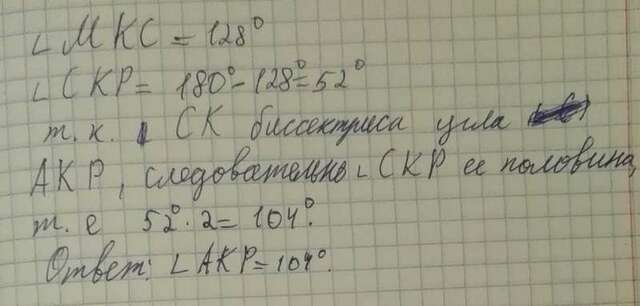 ∠МКС = 128°
∠СКР = 180° - 128° = 52°
т. к. СК биссектриса угла
АКР, следовательно ∠СКР ее половина,
т. е 52° · 2 = 104°.
Ответ: ∠АКР = 104°.